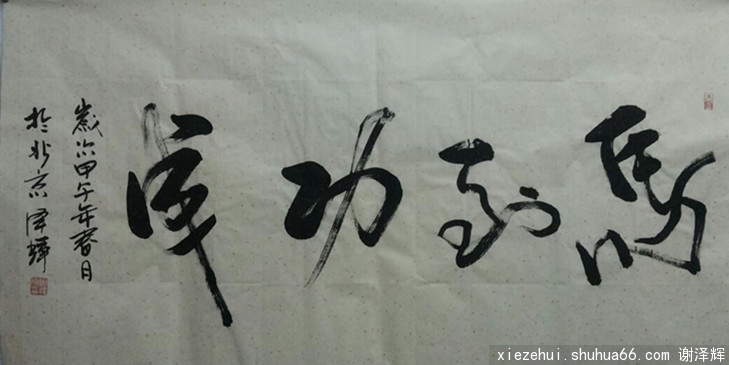 馬到功成
歲次甲午年春月
於北京澤輝
xiezehui.shuhua66.com 谢泽辉